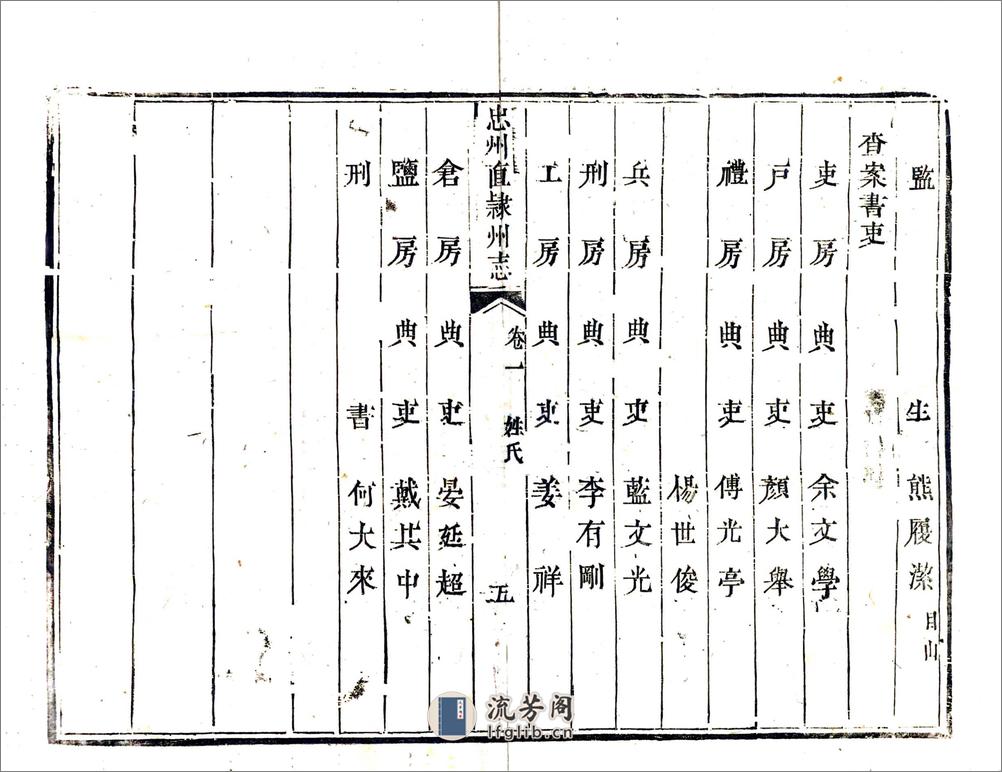 監生熊履潔目山
查案書吏
吏房典吏余文學
戶房典吏顏大舉
禮房典吏傅光亭
楊世俊
兵房典吏藍文光
刑房典吏李有剛
工房典吏姜祥
忠州直隸州志 卷一 姓氏 五
倉房典吏晏延超
鹽房典吏戴其中
刑書何大來
流芳阁
lfglib.cn